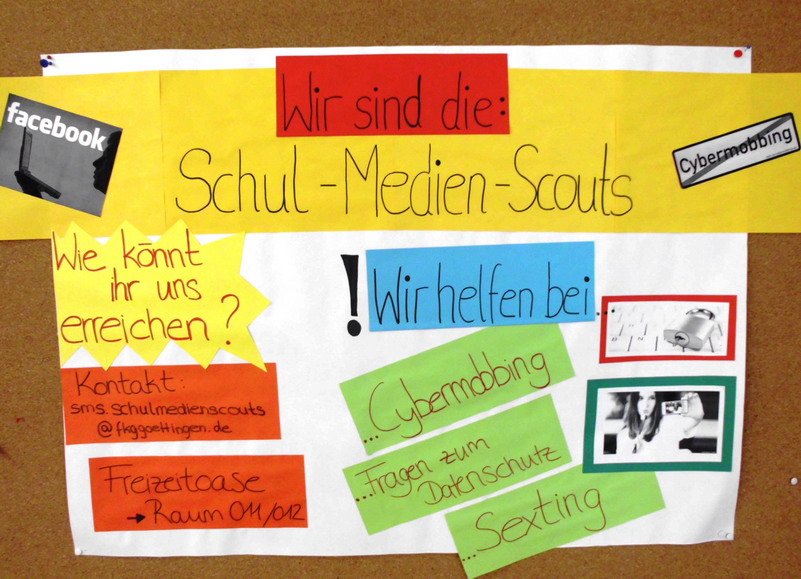 Wir sind die:
facebook
Cybermobbing
Schul-Medien-Scouts
Wie könnt
ihr uns
erreichen?
Kontakt:
sms.schulmedienscouts
@fkggoettingen.de
Freizeitoase
→ Raum 011/012
! Wir helfen bei...
...Cybermobbing
...Fragen zum
Datenschutz
...Sexting